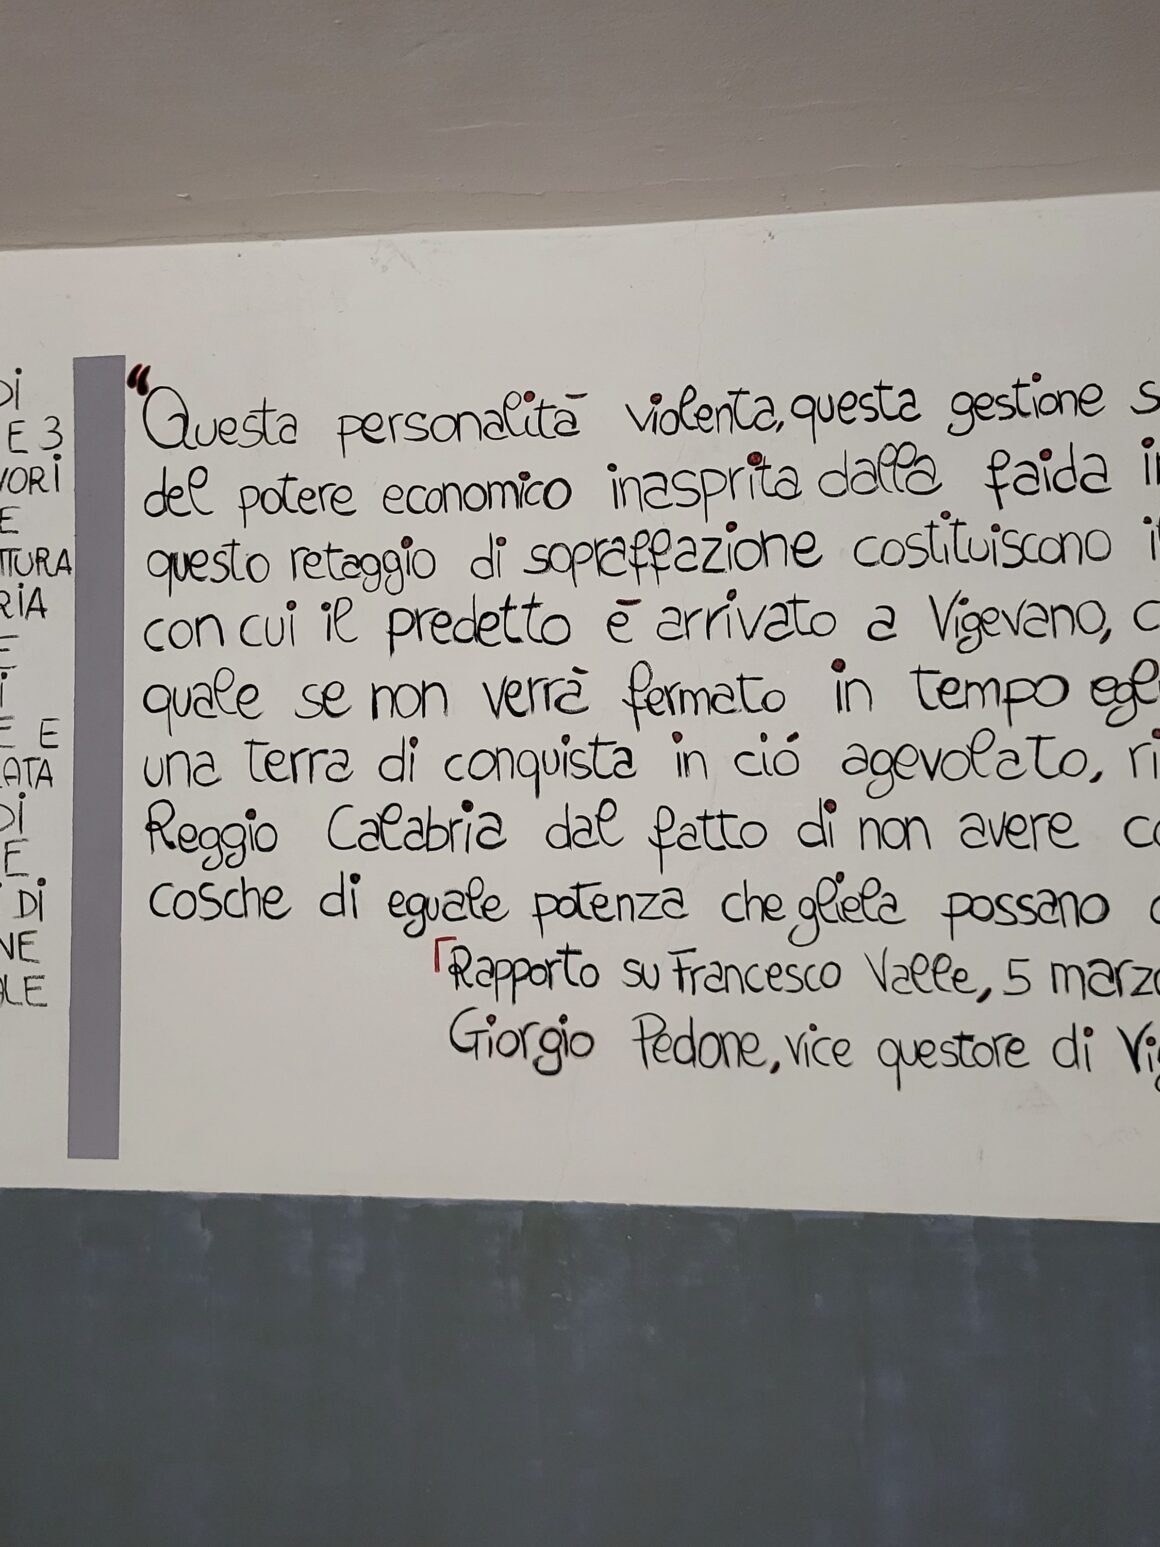 Di
E 3
VORi
E
TTURA
RiA
E
i
E E
LATA
Di
E
i Di
NE
ALE
“Questa personalità violenta, questa gestione s
del potere economico inasprita dalla faida in
questo retaggio di sopraffazione costituiscono il
con cui il predetto è arrivato a Vigevano, c
quale se non verrà fermato in tempo egl
una terra di conquista in ció agevolato, ri
Reggio Calabria dal fatto di non avere co
cosche di eguale potenza che gliela possano c
Rapporto su Francesco Valle, 5 marzo
Giorgio Pedone, vice questore di Vig